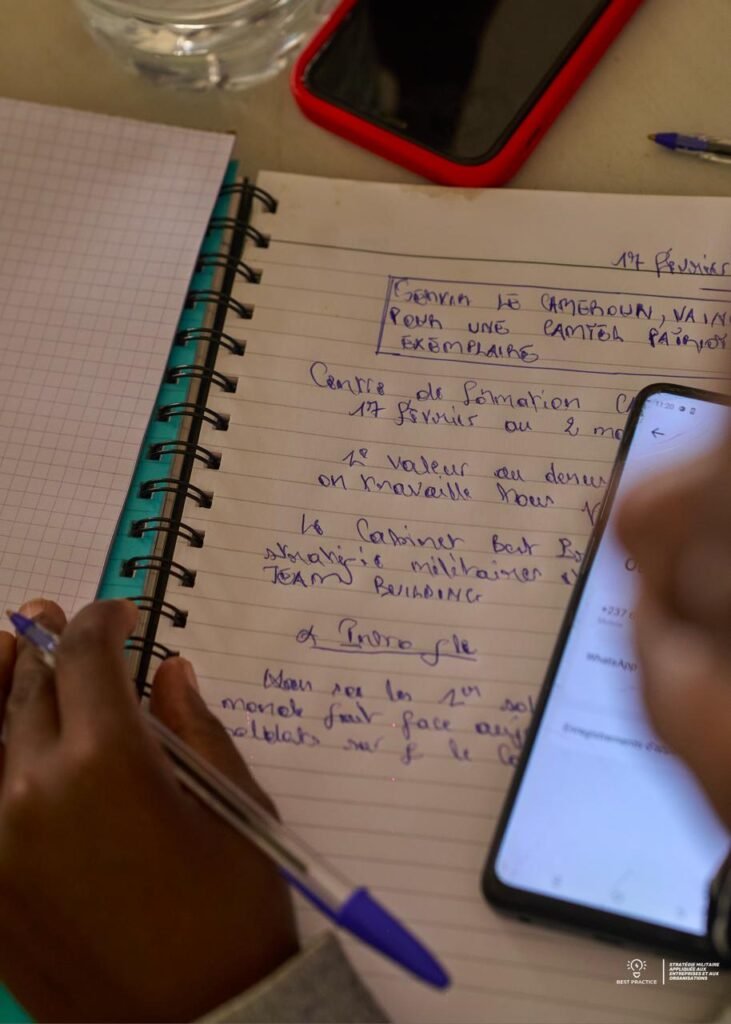 17 février
SERVIR LE CAMEROUN, VAIN
POUR UNE CAMTEL PATRIOT
EXEMPLAIRE
Centre de formation CA
17 février au 2 ma
1e valeur au
on travaille nous
Le Cabinet Best
stratégie militaires
TEAM BUILDING
Intro
les 1er sol
monde fait face
soldats sur le
11:20
+237 6
Mobile
WhatsApp
Enregistrements d'app
BEST PRACTICE
STRATÉGIE MILITAIRE
APPLIQUÉE AUX
ENTREPRISES ET AUX
ORGANISATIONS